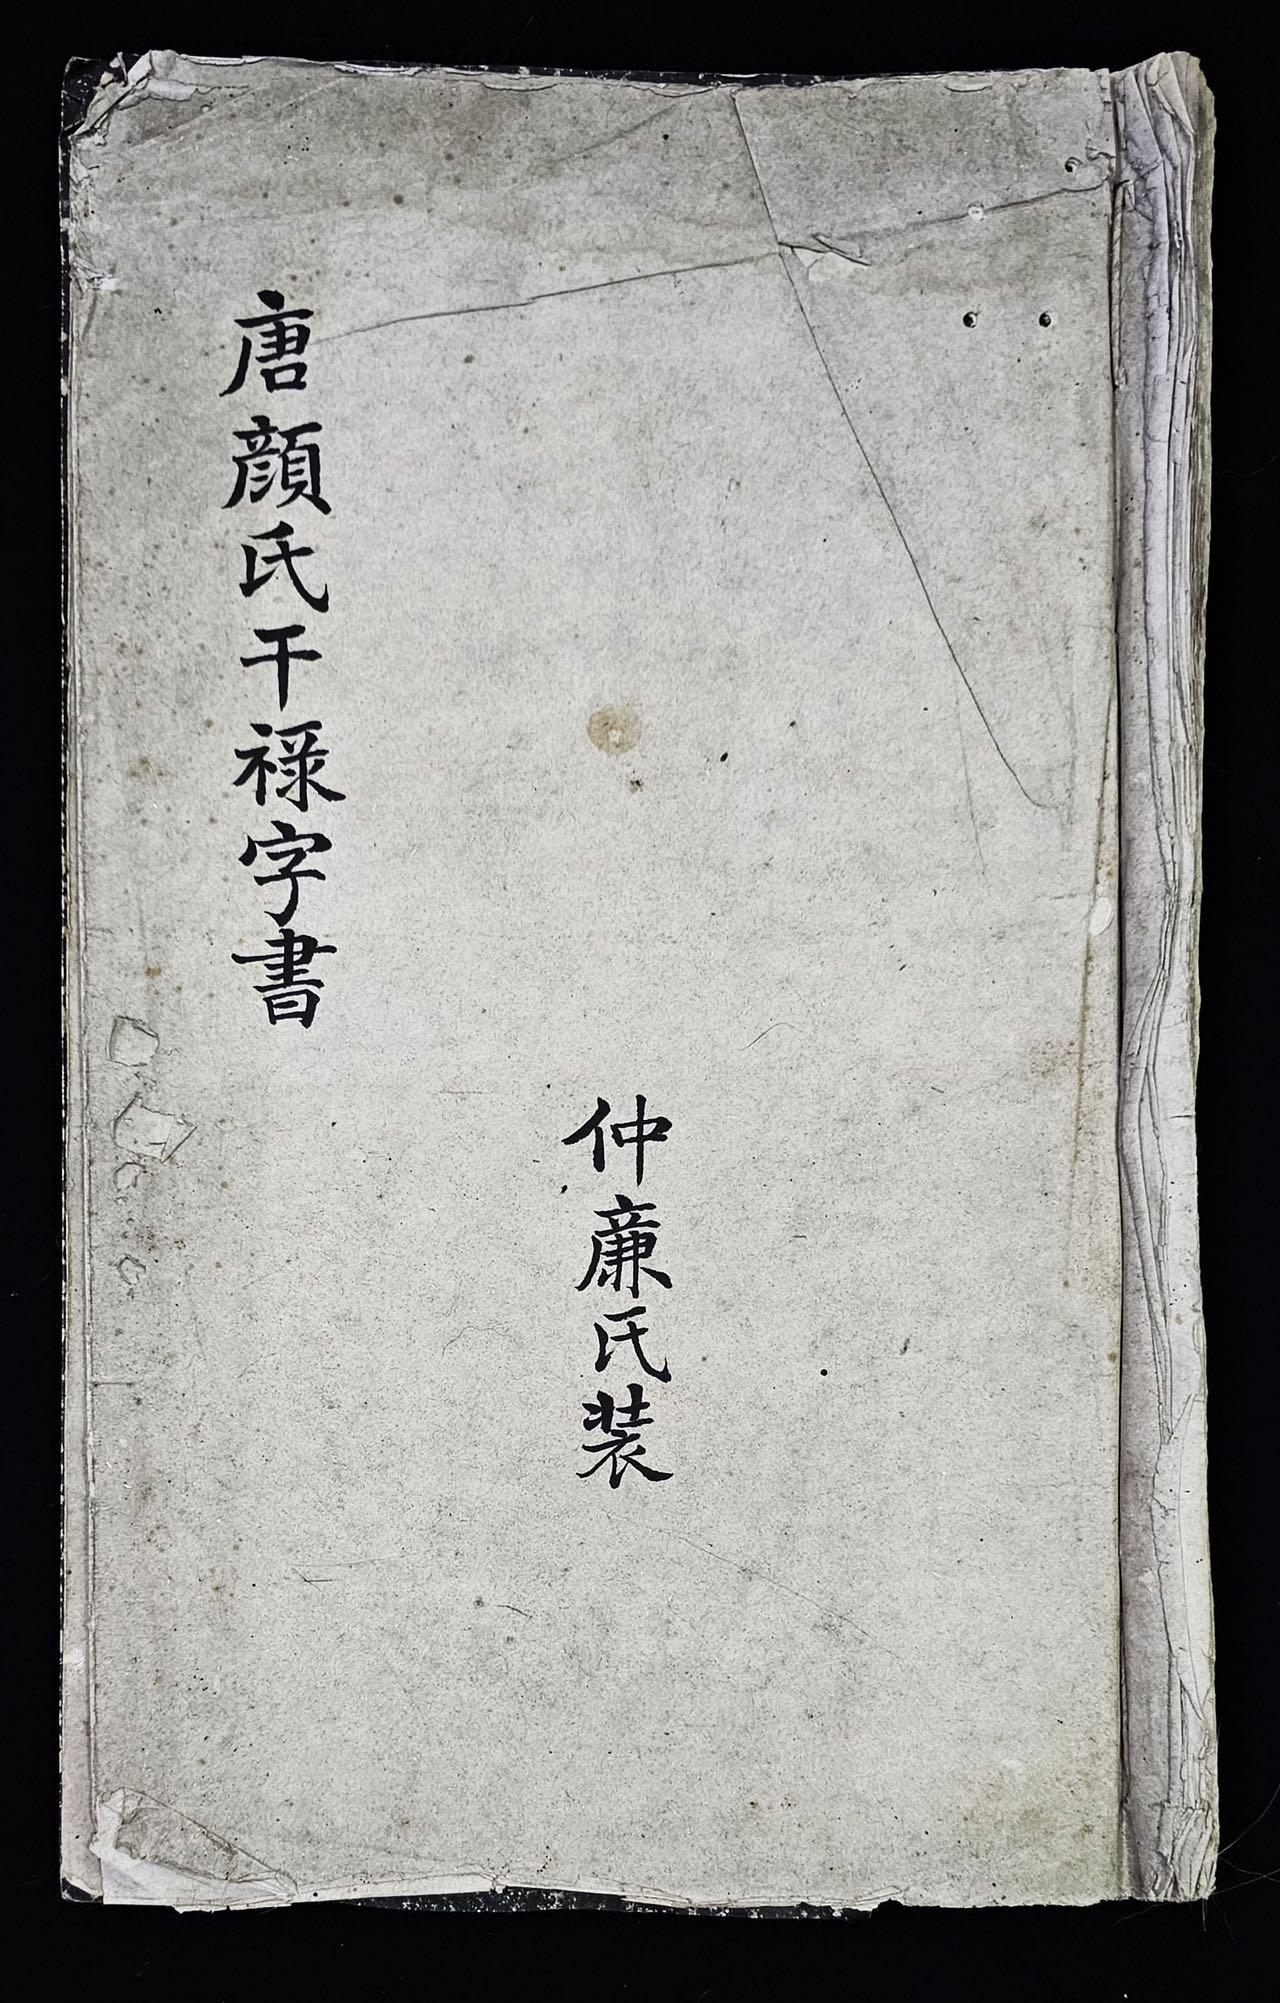 唐顔氏干祿字書
仲廉氏装